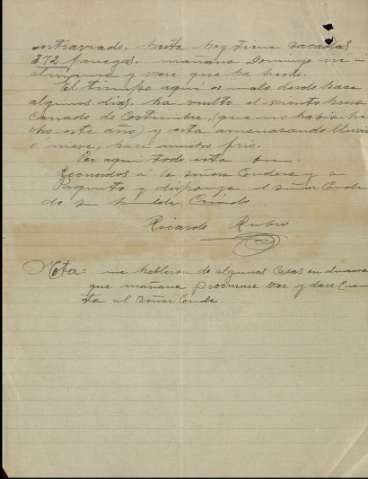 hasta hoy tiene sacadas
372 fanegas. mañana Domingo
y vere que ha hecho.
El tiempo aqui es malo desde hace
algunos dias, ha vuelto el viento
de costumbre, (que no habia he
cho este año) y esta amenazando lluvia
o nieve, hace mucho frio.
Por aqui todo esta
Recuerdos a la señora Condesa y a
Paquito y disponga el señor Conde
de su humilde Criado.
Ricardo Rubio
Nota: me hablaron de algunas Casas en
que mañana procurare ver y dare Cuen
ta al Señor Conde.